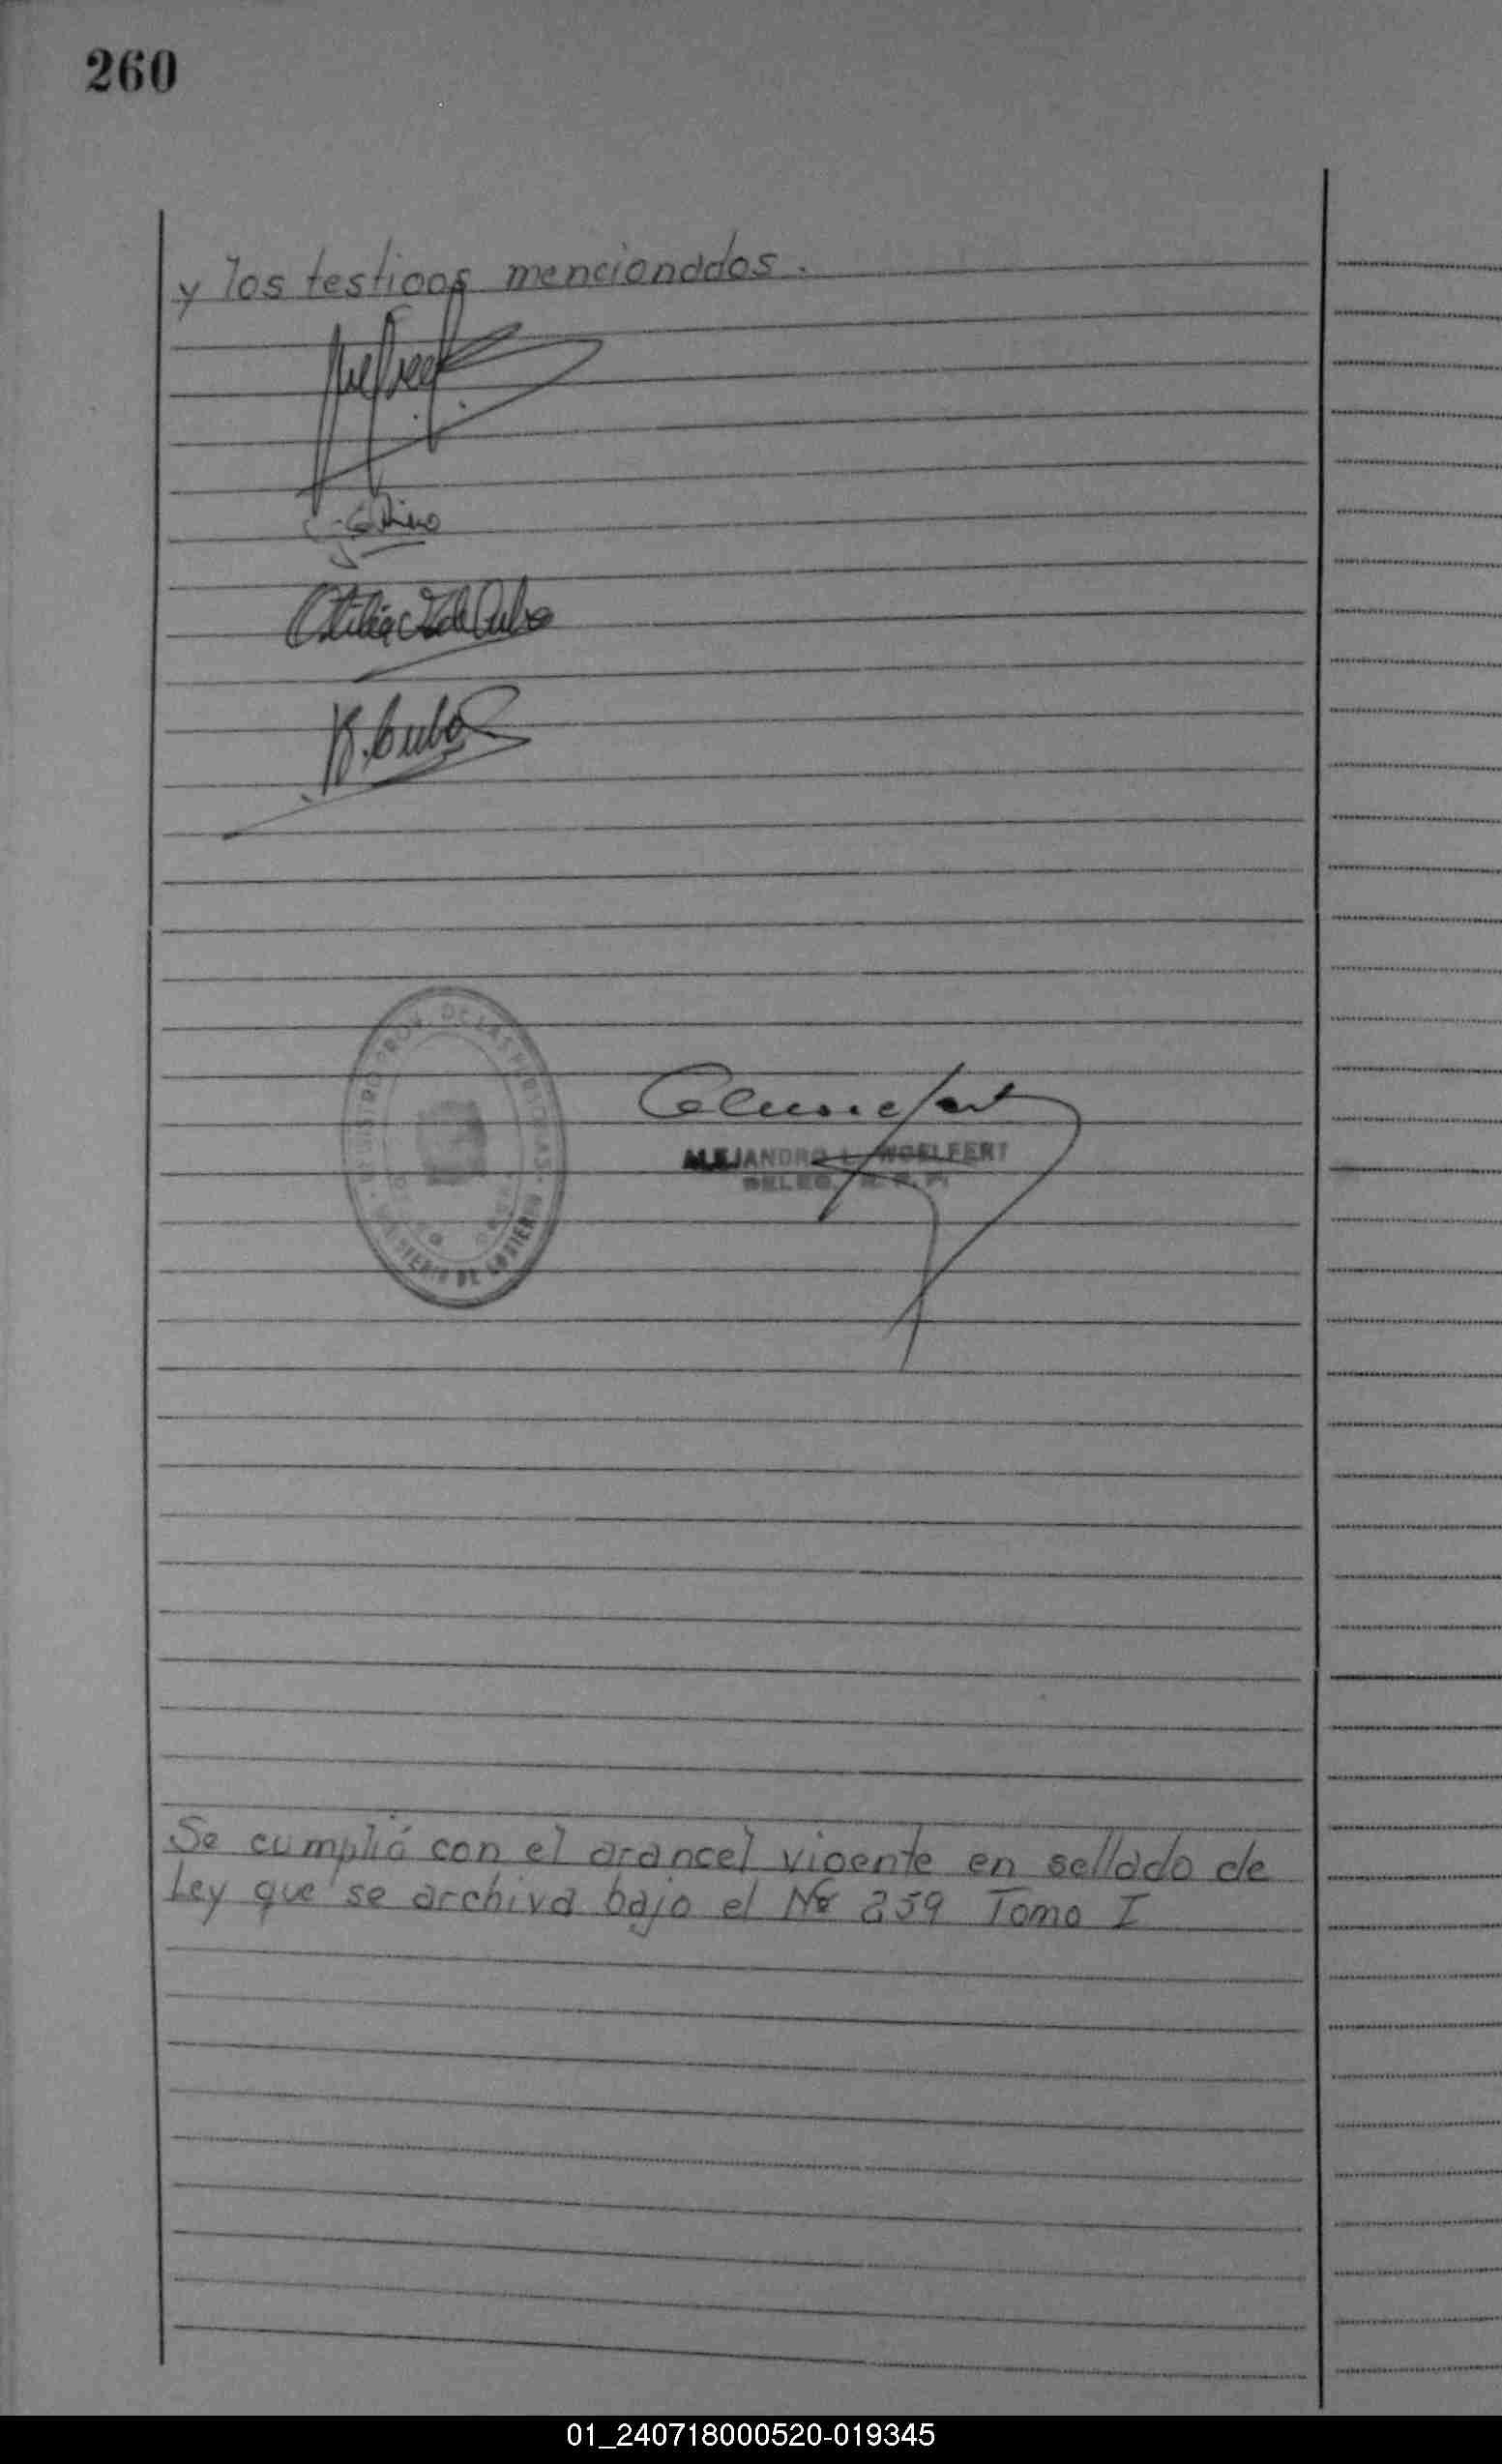 260
y los testigos mencionados.
K. Cubas
REGISTRO PROV. DE LAS PERSONAS
MINISTERIO DE GOBIERNO
ALEJANDRO L. WOELFERT
DELEG. R. P. P.
Se cumplió con el arancel vigente en sellado de
Ley que se archiva bajo el Nº 259 Tomo I
01_240718000520-019345